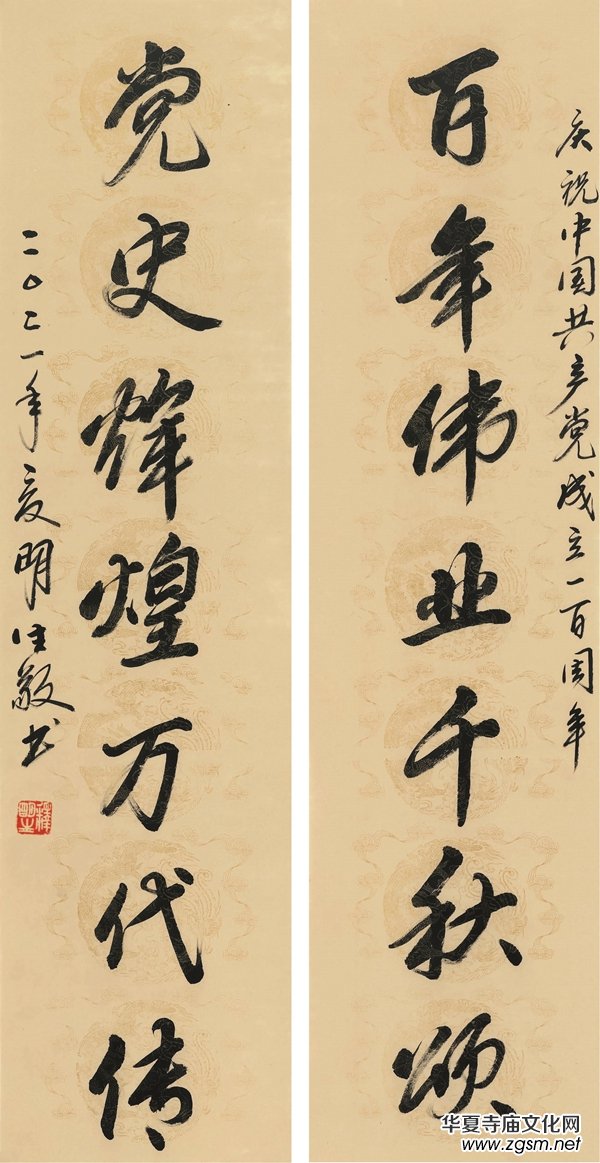 庆祝中国共产党成立一百周年
百年伟业千秋颂
党史煇煌万代传
二〇二一年夏明生敬书
释明生
华夏寺庙文化网
www.zgsm.net